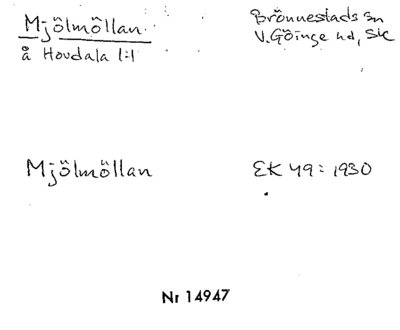 Mjölmöllan
å Hovdala 1:1
Brönnestads sn
V. Göinge hd, Sk
Mjölmöllan
EK 49: 1930
Nr 14947